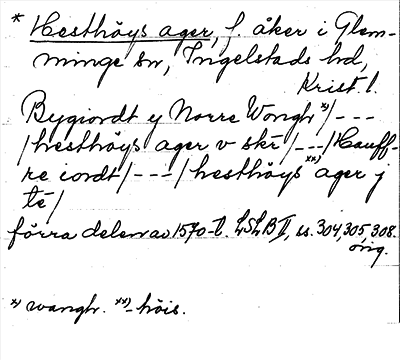 * Hesthöys ager, f. åker i Glem-
minge sn, Ingelstads hd,
Krist. l.
Bygiordt y Norre Wongh x)/---
/hesthöys ager v skr/---/Hauff-
re iordt/---/hesthöys xx) ager j
te/
förra delen av 1570-t. LSLB II, ss. 304, 305, 308.
orig.
x) wangh. xx) -höis.